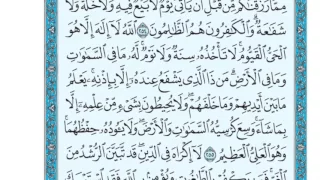 مِمَّا رَزَقْنَٰكُم مِّن قَبْلِ أَن يَأْتِىَ يَوْمٌ لَّا بَيْعٌ فِيهِ وَلَا خُلَّةٌ وَلَا
شَفَٰعَةٌ وَٱلْكَٰفِرُونَ هُمُ ٱلظَّٰلِمُونَ ٢٥٤ ٱللَّهُ لَآ إِلَٰهَ إِلَّا هُوَ
ٱلْحَىُّ ٱلْقَيُّومُ لَا تَأْخُذُهُۥ سِنَةٌ وَلَا نَوْمٌ لَّهُۥ مَا فِى ٱلسَّمَٰوَٰتِ
وَمَا فِى ٱلْأَرْضِ مَن ذَا ٱلَّذِى يَشْفَعُ عِندَهُۥٓ إِلَّا بِإِذْنِهِۦ يَعْلَمُ
مَا بَيْنَ أَيْدِيهِمْ وَمَا خَلْفَهُمْ وَلَا يُحِيطُونَ بِشَىْءٍ مِّنْ عِلْمِهِۦٓ إِلَّا
بِمَا شَآءَ وَسِعَ كُرْسِيُّهُ ٱلسَّمَٰوَٰتِ وَٱلْأَرْضَ وَلَا يَـُٔودُهُۥ حِفْظُهُمَا
وَهُوَ ٱلْعَلِىُّ ٱلْعَظِيمُ ٢٥٥ لَآ إِكْرَاهَ فِى ٱلدِّينِ قَد تَّبَيَّنَ ٱلرُّشْدُ مِنَ